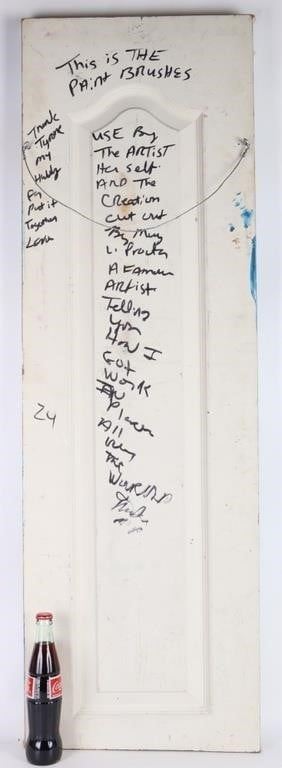 This is THE
PAINT BRUSHES
Thank
Tyrone
my
Hubby
For
Put it
Together
Love
USE By
The ARTIST
Her self
AND The
Creation
cut out
By Mary
L. Proctor
A Famous
Artist
Telling
You
How I
Got
Work
IN
Places
All
Over
The
World
24
Coca-Cola